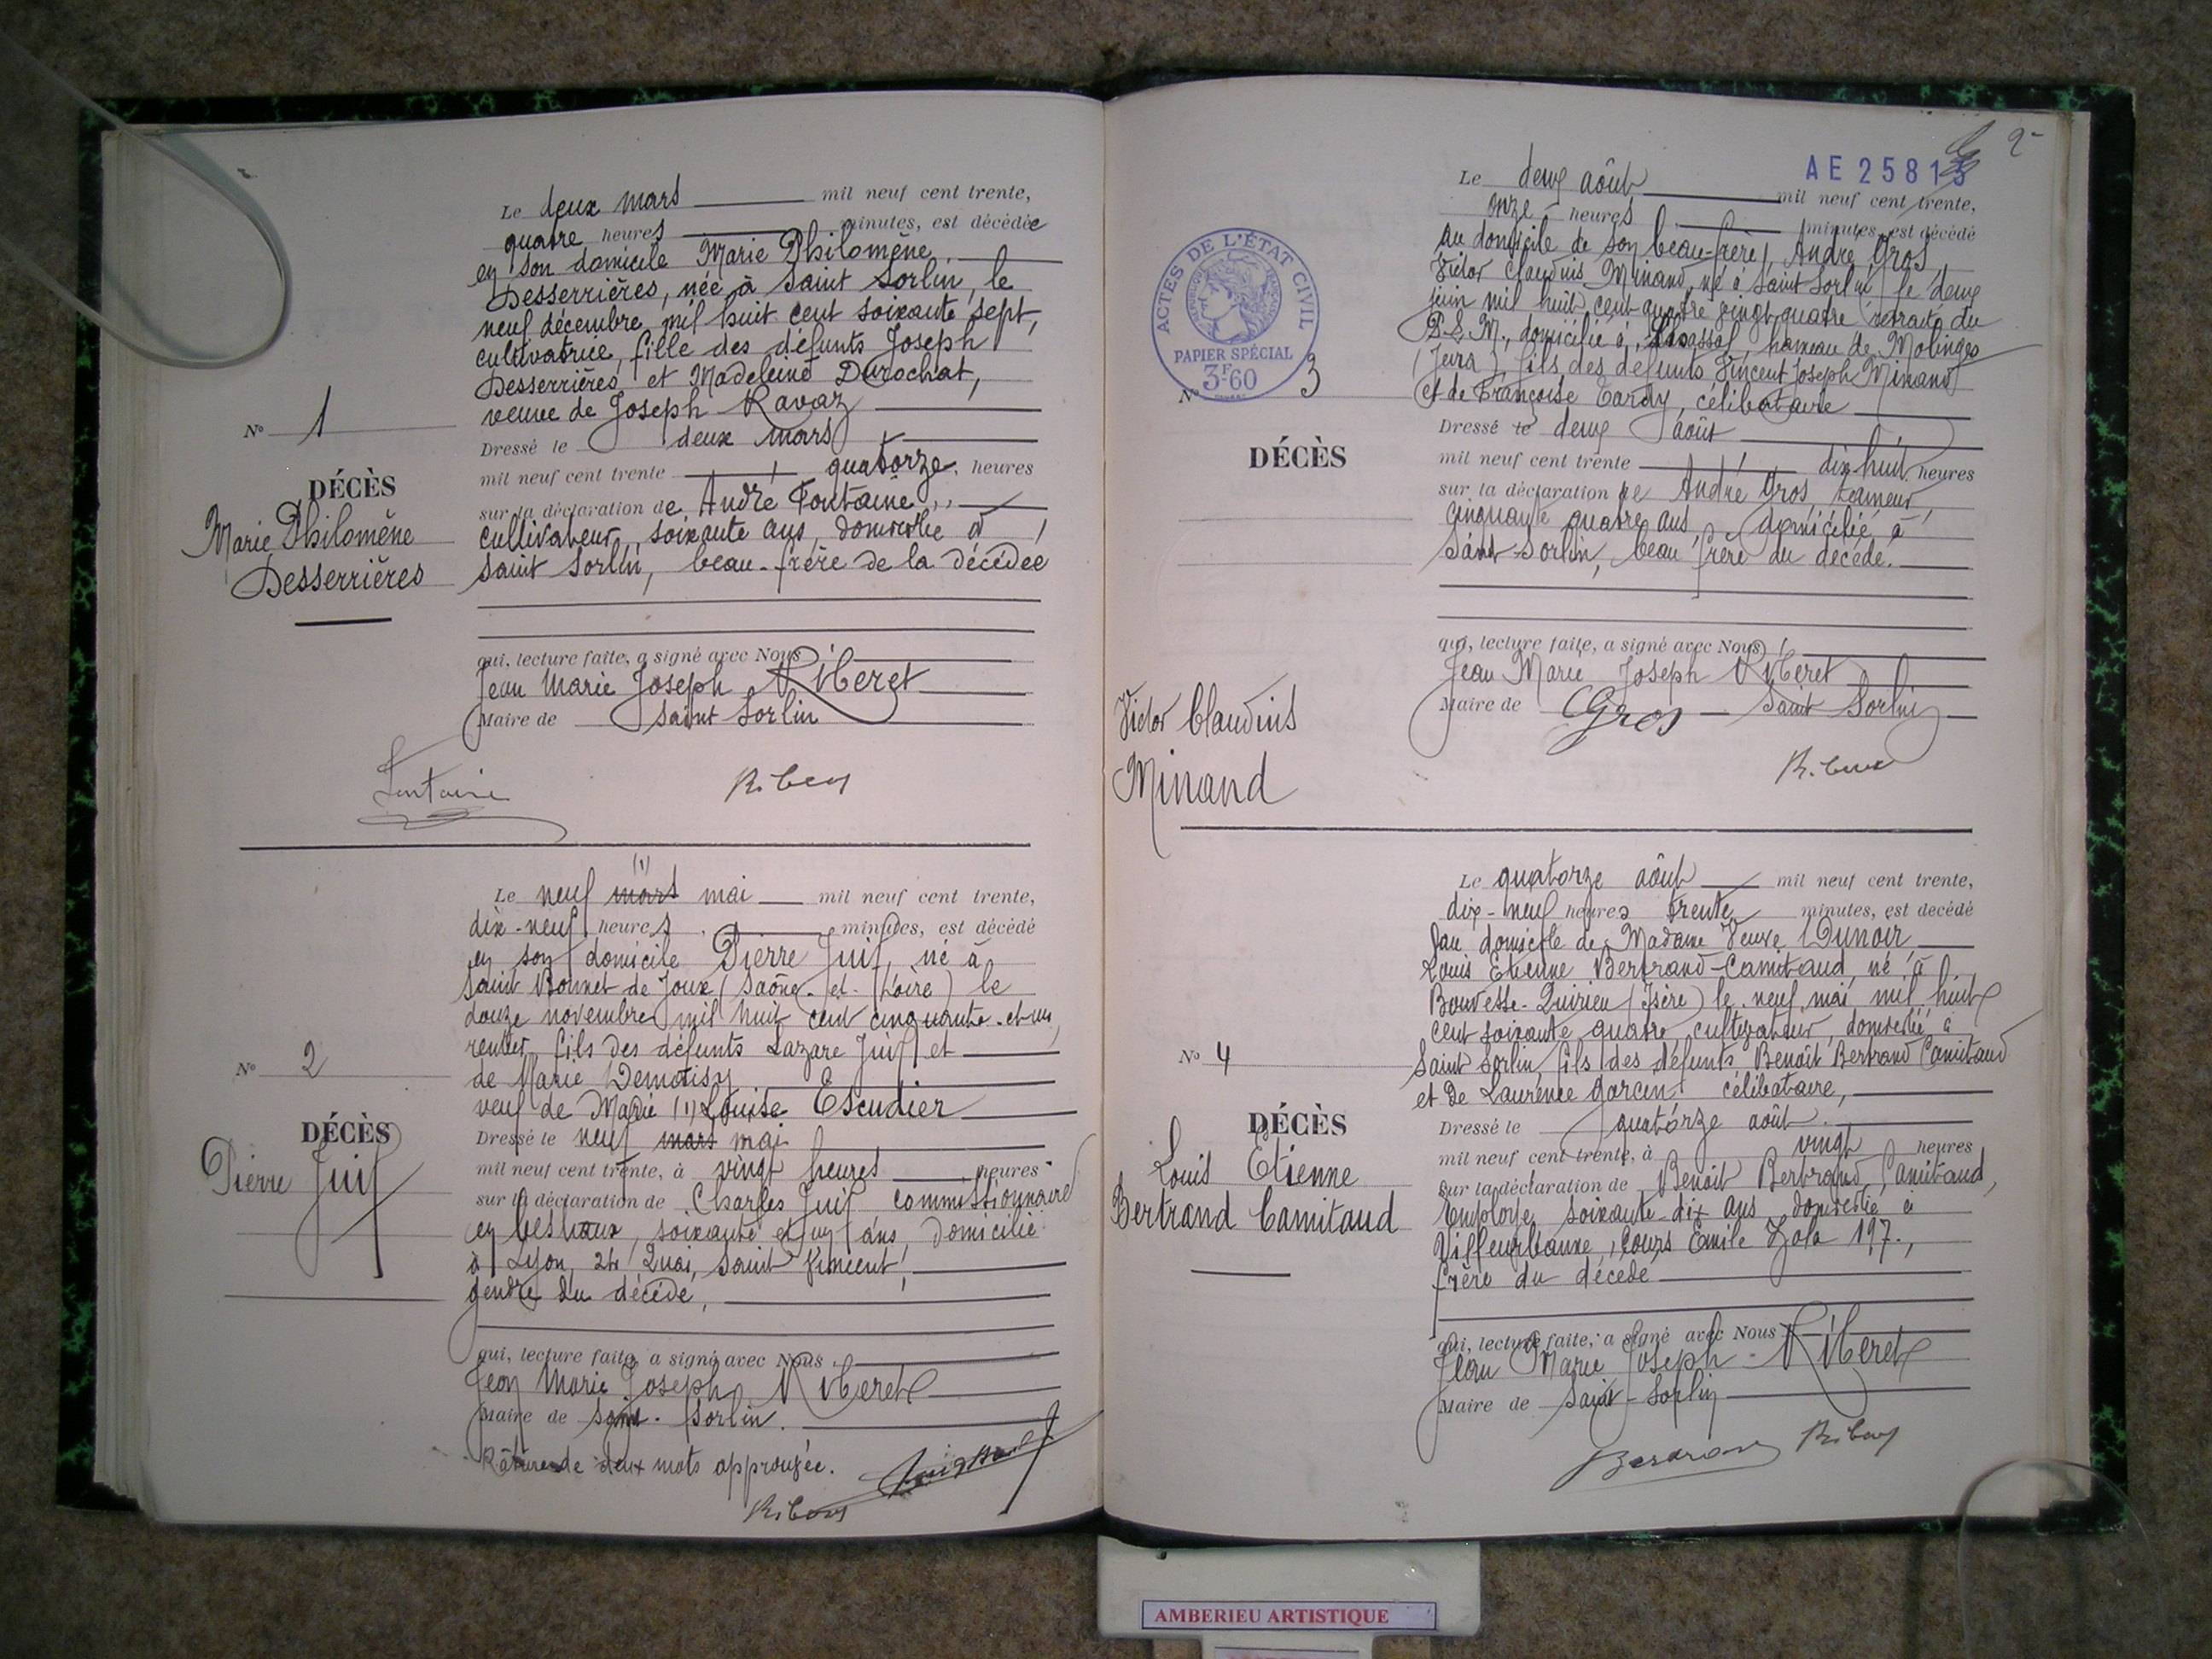 Le deux mars mil neuf cent trente,
quatre heures minutes, est décédée
en son domicile Marie Philomène
Desserrières, née à Saint Sorlin, le
neuf décembre mil huit cent soixante sept,
cultivatrice, fille des défunts Joseph
Desserrières et Madeleine Durochat,
veuve de Joseph Ravaz
Dressé le deux mars
mil neuf cent trente quatorze heures
sur la déclaration de André Fontaine,
cultivateur, soixante ans, domicilié à
Saint Sorlin, beau-frère de la décédée
qui, lecture faite, a signé avec Nous
Jean Marie Joseph Riberet
Maire de Saint Sorlin
Nº 1
DÉCÈS
Marie Philomène
Desserrières
Fontaine
Riberet
(1)
Le neuf mars mai mil neuf cent trente,
dix-neuf heures minutes, est décédé
en son domicile Pierre Juif, né à
Saint Bonnet de Joux (Saône-et-Loire) le
douze novembre mil huit cent cinquante-et-un,
rentier, fils des défunts Lazare Juif et
de Marie
veuf de Marie (1) Louise Escudier
Dressé le neuf mars mai
mil neuf cent trente, à vingt heures heures
sur la déclaration de Charles Juif commissionnaire
en bestiaux, soixante et un ans, domicilié
à Lyon, 24 Quai, Saint Vincent,
gendre du décédé,
qui, lecture faite, a signé avec Nous
Jean Marie Joseph Riberet
Maire de Saint-Sorlin.
Rature de deux mots approuvée.
Riberet
Nº 2
DÉCÈS
Pierre Juif
2
AE 25813
Le deux août mil neuf cent trente,
onze heures minutes, est décédé
au domicile de son beau-frère, André Gros,
Victor Claudius Minand, né à Saint Sorlin, le deux
juin mil huit cent quatre vingt quatre retraité du
P.L.M., domicilié à Chassal, hameau de Molinges
(Jura), fils des défunts Vincent Joseph Minand
et de Françoise Tardy, célibataire
Dressé le deux août
mil neuf cent trente dix huit heures
sur la déclaration de André Gros,
cinquante quatre ans, domicilié à
Saint-Sorlin, beau frère du décédé.
qui, lecture faite, a signé avec Nous
Jean Marie Joseph Riberet
Maire de Saint Sorlin
Gros
Riberet
ACTES DE L'ÉTAT CIVIL
PAPIER SPÉCIAL
3F60
Nº 3
DÉCÈS
Victor Claudius
Minand
Le quatorze août mil neuf cent trente,
dix-neuf heures trente minutes, est décédé
au domicile de Madame Veuve Dunoir
Louis Etienne Bertrand-Camitaud, né à
Bouvesse-Quirieu (Isère) le neuf mai mil huit
cent soixante quatre, cultivateur, domicilié à
Saint Sorlin, fils des défunts Benoît Bertrand Camitaud
et de Laurence Garcin célibataire,
Dressé le quatorze août
mil neuf cent trente, à vingt heures
sur la déclaration de Benoit Bertrand Camitaud,
Employé, soixante-dix ans, domicilié à
Villeurbanne, cours Emile Zola 197.,
frère du décédé
qui, lecture faite, a signé avec Nous
Jean Marie Joseph Riberet
Maire de Saint-Sorlin
Bertrand
Riberet
Nº 4
DÉCÈS
Louis Etienne
Bertrand Camitaud
AMBERIEU ARTISTIQUE